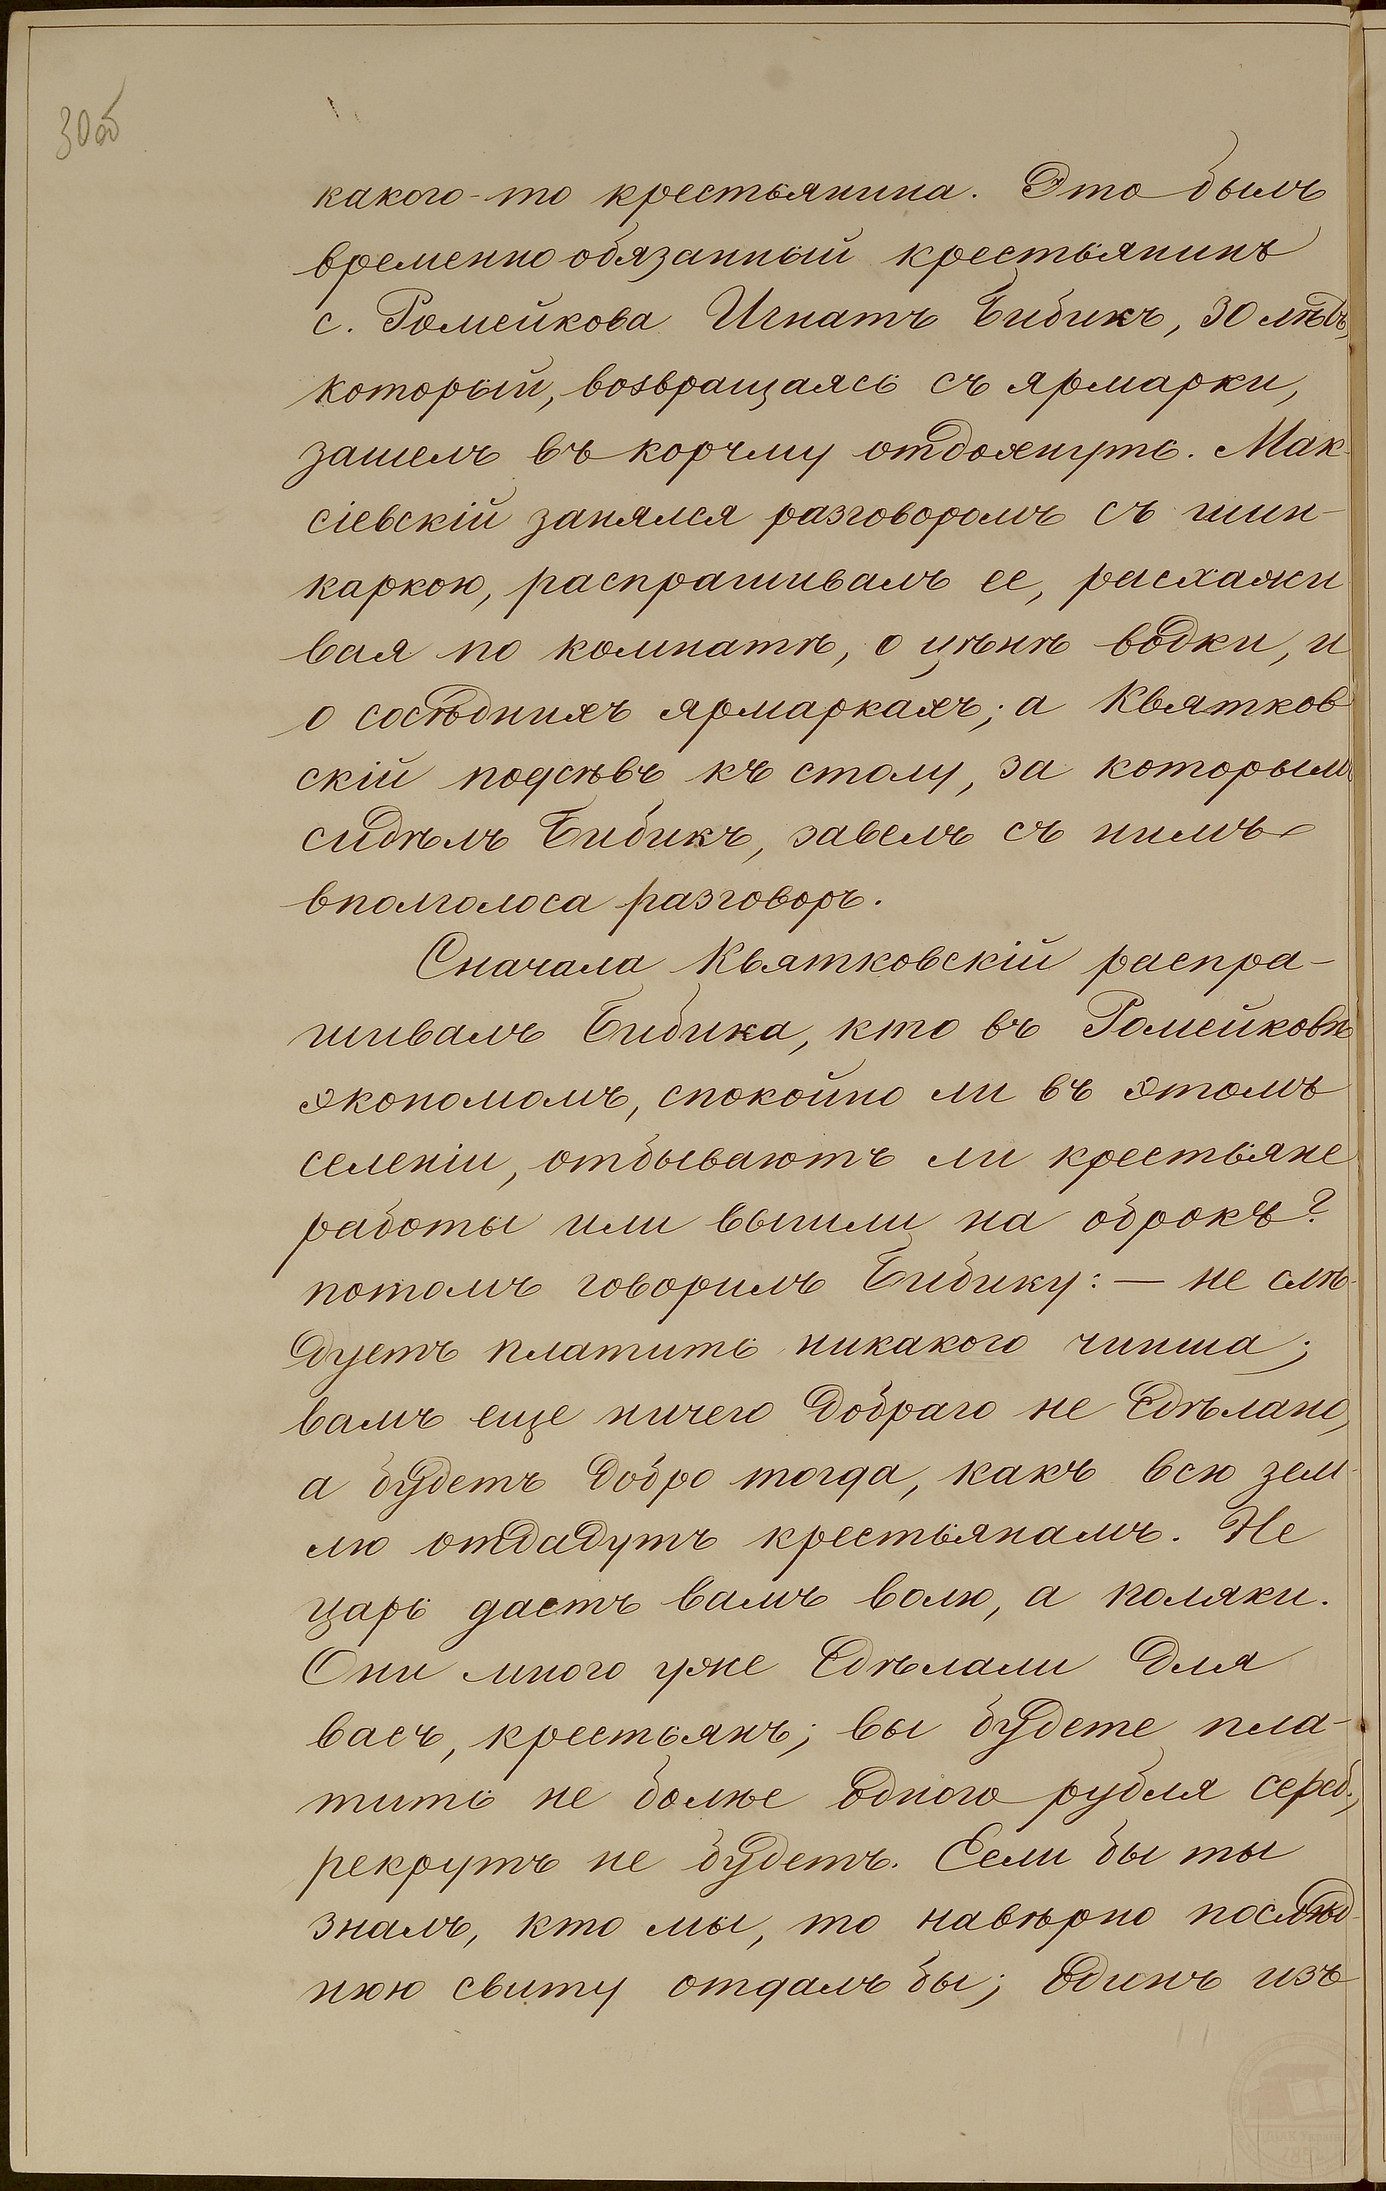 30об
какого-то крестьянина. Это былъ
временно обязанный крестьянинъ
с. Ромейкова Игнатъ Бибикъ, 30 лѣтъ,
который, возвращаясь съ ярмарки,
зашелъ въ корчму отдохнуть. Мак-
сіевскій занялся разговоромъ съ шин-
каркою, распрашивалъ ее, расхажи
вая по комнатѣ, о цѣнѣ водки, и
о сосѣднихъ ярмаркахъ; а Квятков
скій подсѣвъ къ столу, за которымъ
сидѣлъ Бибикъ, завелъ съ нимъ
вполголоса разговоръ.
Сначала Квятковскій распра-
шивалъ Бибика, кто въ Ромейковѣ
экономомъ, спокойно ли въ этомъ
селеніи, отбываютъ ли крестьяне
работы или вышли на оброкъ?
потомъ говорилъ Бибику: — не слѣ-
дуетъ платить никакого чинша;
вамъ еще ничего добраго не сдѣлано,
а будетъ добро тогда, какъ всю зем-
лю отдадутъ крестьянамъ. Не
царь дастъ вамъ волю, а поляки.
Они много уже сдѣлали для
васъ, крестьянъ; вы будете пла-
тить не болѣе одного рубля сереб.,
рекрутъ не будетъ. Если бы ты
зналъ, кто мы, то навѣрно послѣд-
нюю свиту отдалъ бы; одинъ изъ